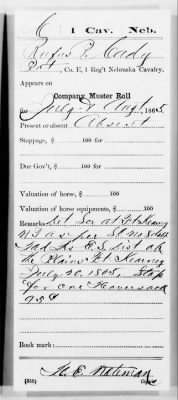 C 1 Cav. Neb.
Rufus E. Cady
Pvt, Co. E, 1 Reg't Nebraska Cavalry.
Appears on
Company Muster Roll
for July & Aug, 1865.
Present or absent Absent
Stoppage, $ 100 for
Due Gov't, $ 100
Valuation of horse, $ 100
Valuation of horse equipments, $ 100
Remarks: Det Ser at Ft Kearny
N.T. as per
Dist of
the Plains Ft Kearney
July 20, 1865, Stop
for one Haversack
Book mark:
(358) Copyist.